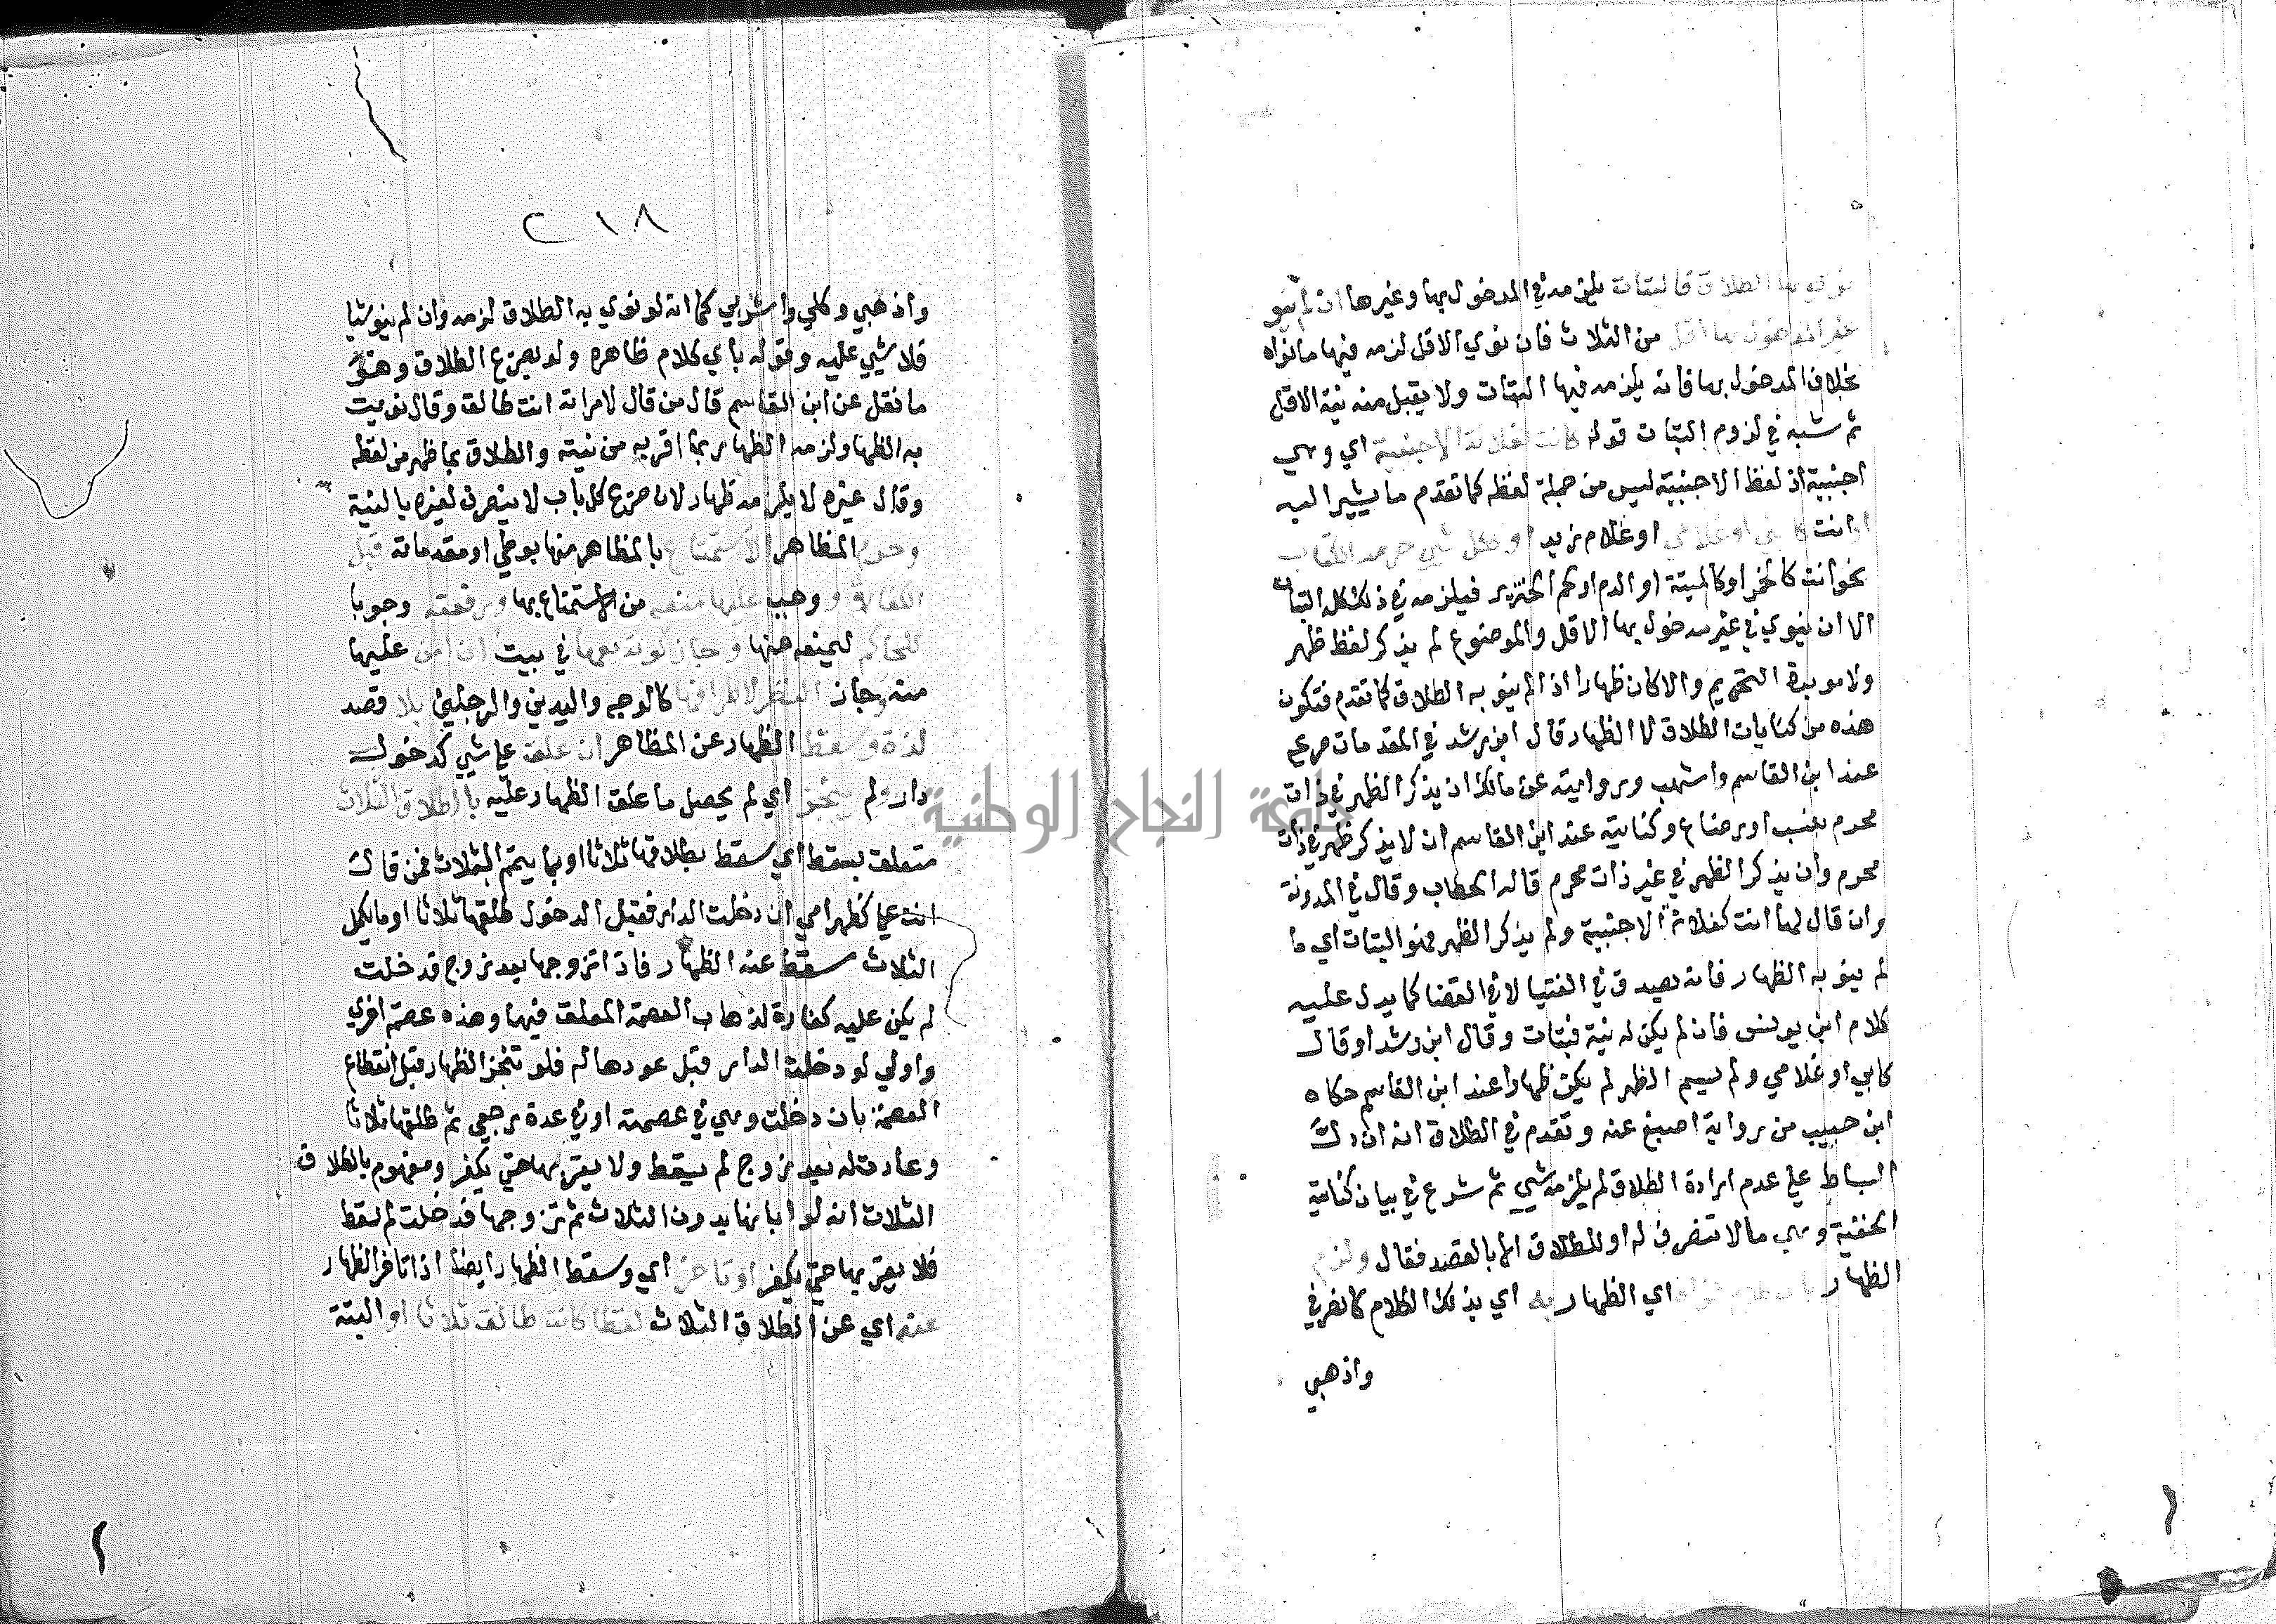 الطلاق فالبتات يلزمه في المدخول بها وغيرها ان لم ينو
غير المدخول بها اقل من الثلاث فان نوي الاقل لزمه فيها ما نواه
بخلاف المدخول بها فانه يلزمه فيها البتات ولا يقبل منه نية الاقل
ثم شبه في لزوم البتات قوله كانت كفلانة الاجنبية اي وهي
اجنبية اذ لفظ الاجنبية ليس من جملة لفظه كما تقدم ما يشير اليه
او انت كابني او غلامي او غلام زيد او ككل شيي حرمه الكتاب
نحو انت كالخمر او كالميتة او الدم او لحم الخنزير فيلزمه في ذلك كله البتات
الا ان ينوي في غير مدخول بها الاقل والموضوع لم يذكر لفظ ظهر
ولا موبدة التحريم والا كان ظهارا اذا لم ينو به الطلاق كما تقدم فتكون
هذه من كنايات الطلاق لا الظهار قال ابن رشد في المقدمات صريح
عند ابن القاسم واشهب وروايته عن مالك ان يذكر الظهر في ذات
محرم بنسب او رضاع وكنايته عند ابن القاسم ان لا يذكر ظهر في ذات
محرم وان يذكر الظهر في غير ذات محرم قاله الحطاب وقال في المدونة
وان قال لها انت كفلانة الاجنبية ولم يذكر الظهر فهو البتات اي ما
لم ينو به الظهار فانه يصدق في الفتيا لا في القضا كما يدل عليه
كلام ابن يونس فان لم يكن له نية فبتات وقال ابن رشد او قال
كابي او غلامي ولم يسم الظهر لم يكن ظهارا عند ابن القاسم حكاه
ابن حبيب من رواية اصبغ عنه وتقدم في الطلاق انه ان دل
البساط علي عدم ارادة الطلاق لم يلزمه شيي ثم شرع في بيان كنايته
الخفية وهي مالا تنصرف له او للطلاق الا بالقصد فقال ولزم
الظهار باي كلام نواه اي الظهار به اي بذلك الكلام كانصرفي
واذهبي
٢١٨
واذهبي وكلي واشربي كما انه لو نوي به الطلاق لزمه وان لم ينو شيا
فلا شيي عليه وقوله بأي كلام ظاهره ولو بصريح الطلاق وهو
ما نقل عن ابن القاسم قال من قال لامراته انت طالق وقال نويت
به الظهار لزمه الظهار بما اقر به من نيته والطلاق بما ظهر من لفظه
وقال غيره لا يلزمه ظهار لان صريح كل باب لا ينصرف لغيره بالنية
وحرم المظاهر الاستمتاع بالمظاهر منها بوطي او مقدماته قبل
الكفارة ووجب عليها منعه من الاستمتاع بها ورفعته وجوبا
للحاكم ليمنعه منها وجاز كونه معها في بيت ان امن عليها
منه وجاز النظر لاطرافها كالوجه واليدين والرجلين بلا قصد
لذة وسقط الظهار عن المظاهر ان علق علي شيي كدخول
دار ولم يتنجز اي لم يحصل ما علق الظهار عليه بالطلاق الثلاث
متعلق بسقط اي سقط بطلاقها ثلاثا او بما يتم الثلاث فمن قال
انت علي كظهر امي ان دخلت الدار فقبل الدخول طلقها ثلاثا او ما يكمل
الثلاث سقط عنه الظهار فاذا تزوجها بعد زوج فدخلت
لم يكن عليه كفارة لذهاب العصمة المعلق فيها وهذه عصمة اخري
واولي لو دخلت الدار قبل عودها له فلو تنجز الظهار قبل انقطاع
العصمة بان دخلت وهي في عصمته او في عدة رجعي ثم طلقها ثلاثا
وعادت له بعد زوج لم يسقط ولا يقربها حتي يكفر ومفهوم بالطلاق
الثلاث انه لو ابانها بدون الثلاث ثم تزوجها فدخلت لم يسقط
فلا يقربها حتي يكفر او تاخر اي وسقط الظهار ايضا اذا تاخر الظهار
عنه اي عن الطلاق الثلاث لفظا كانت طالق ثلاثا او البتة
جامعة النجاح الوطنية